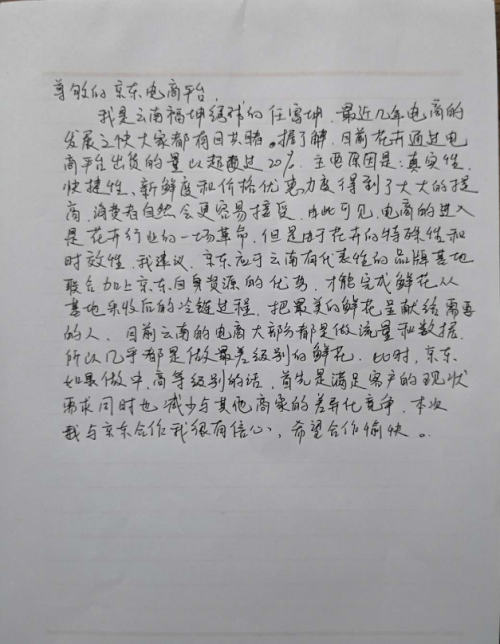 尊敬的京东电商平台,
我是云南福坤绣球的任富坤,最近几年电商的
发展之快大家都有目共睹。据了解,目前花卉通过电
商平台出货的量以超过20%,主要原因是:真实性,
快捷性、新鲜度和价格优惠力度得到了大大的提
高,消费者自然会更容易接受,由此可见,电商的进入
是花卉行业的一场革命,但是由于花卉的特殊性和
时效性,我建议,京东应于云南有代表性的品牌基地
联合加上京东自身资源的优势,才能完成鲜花从
基地采收后的冷链过程,把最美的鲜花呈献给需要
的人,目前云南的电商大部分都是做流量和数据,
所以几乎都是做最差级别的鲜花,比时,京东
如果做中,高等级别的话,首先是满足客户的现状
需求同时也减少与其他商家的差异化竞争,本次
我与京东合作我很有信心,希望合作愉快。